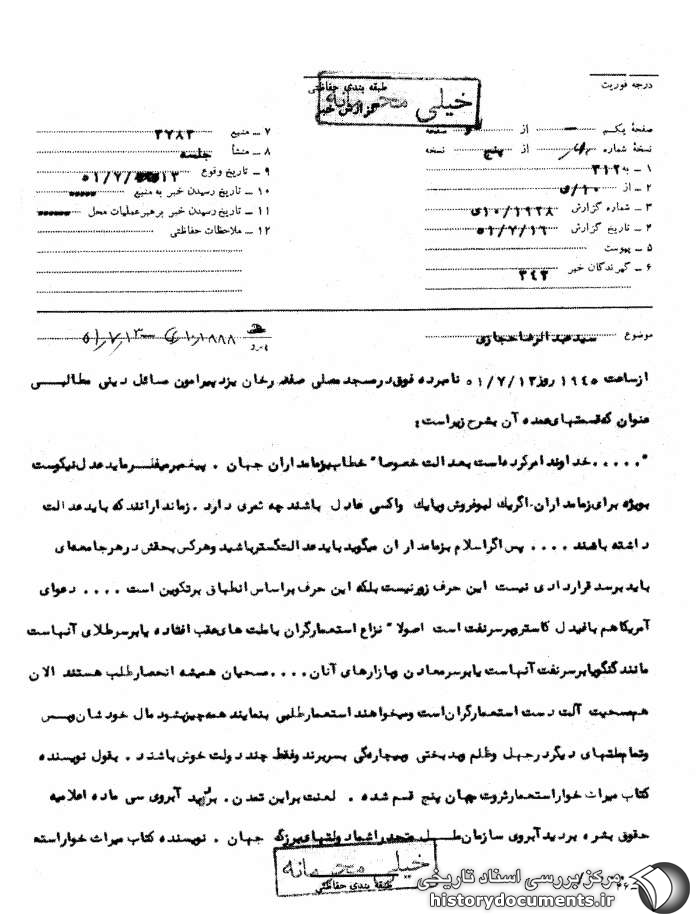 درجه فوریت
طبقه بندی حفاظتی
خیلی محرمانه
گزارش خبر
صفحهٔ یکم - از صفحه
نسخهٔ شماره از پنج نسخه
۱ - به ۳۱۲
۲ - از ۱۰/ی
۳ - شماره گزارش ۱۰/۱۹۲۸ی
۴ - تاریخ گزارش ۵۱/۷/۱۶
۵ - پیوست
۶ - گیرندگان خبر ۳۴۳
۷ - منبع ۳۷۸۳
۸ - منشأ جلسه
۹ - تاریخ وقوع ۵۱/۷/۱۳
۱۰ - تاریخ رسیدن خبر به منبع
۱۱ - تاریخ رسیدن خبر برهبر عملیات محل
۱۲ - ملاحظات حفاظتی
موضوع سید عبدالرضا حجازی
پیرو
از ساعت ۱۹۴۵ روز ۵۱/۷/۱۳ نامبرده فوق در مسجد مصلی صفدرخان یزد پیرامون مسائل دینی مطالبی
عنوان که قسمتهای عمده آن بشرح زیر است:
"..... خداوند امر کرده است بعدالت خصوصا" خطاب بزمامداران جهان . پیغمبر میفرماید عدل نیکوست
بویژه برای زمامداران. اگر یک لبوفروش و یا یک واکسی عادل باشند چه ثمری دارد . زماندارانند که باید عدالت
داشته باشند .... پس اگر اسلام بزمامداران میگوید باید عدالت گستر باشید و هرکس بحقش در هر جامعه ای
باید برسد قراردادی نیست این حرف زور نیست بلکه این حرف بر اساس انطباق بر تکوین است .... دعوای
آمریکا هم با فیدل کاسترو بر سر نفت است اصولا" نزاع استعمارگران با ملت های عقب افتاده یا بر سر طلای آنهاست
مانند کنگو یا بر سر نفت آنهاست یا بر سر معادن و بازارهای آنان .... مسحیان همیشه انحصار طلب هستند الان
هم مسحیت آلت دست استعمارگران است و میخواهند استعمار طلبی بنمایند همه چیز بشود مال خودشان و بس
و تمام ملتهای دیگر در جهل و ظلم و بدبختی و بیچارگی بسر برند و فقط چند دولت خوش باشند . بقول نویسنده
کتاب میراث خوار استعمار ثروت جهان پنج قسم شده . لعنت بر این تمدن . برید آبروی سی ماده اعلامیه
حقوق بشر را بردید آبروی سازمان ملل متحد را شما دولتهای بزرگ جهان . نویسنده کتاب میراث خوار استعـ
خیلی محرمانه
طبقه بندی حفاظتی
مرکز بررسی اسناد تاریخی
historydocuments.ir